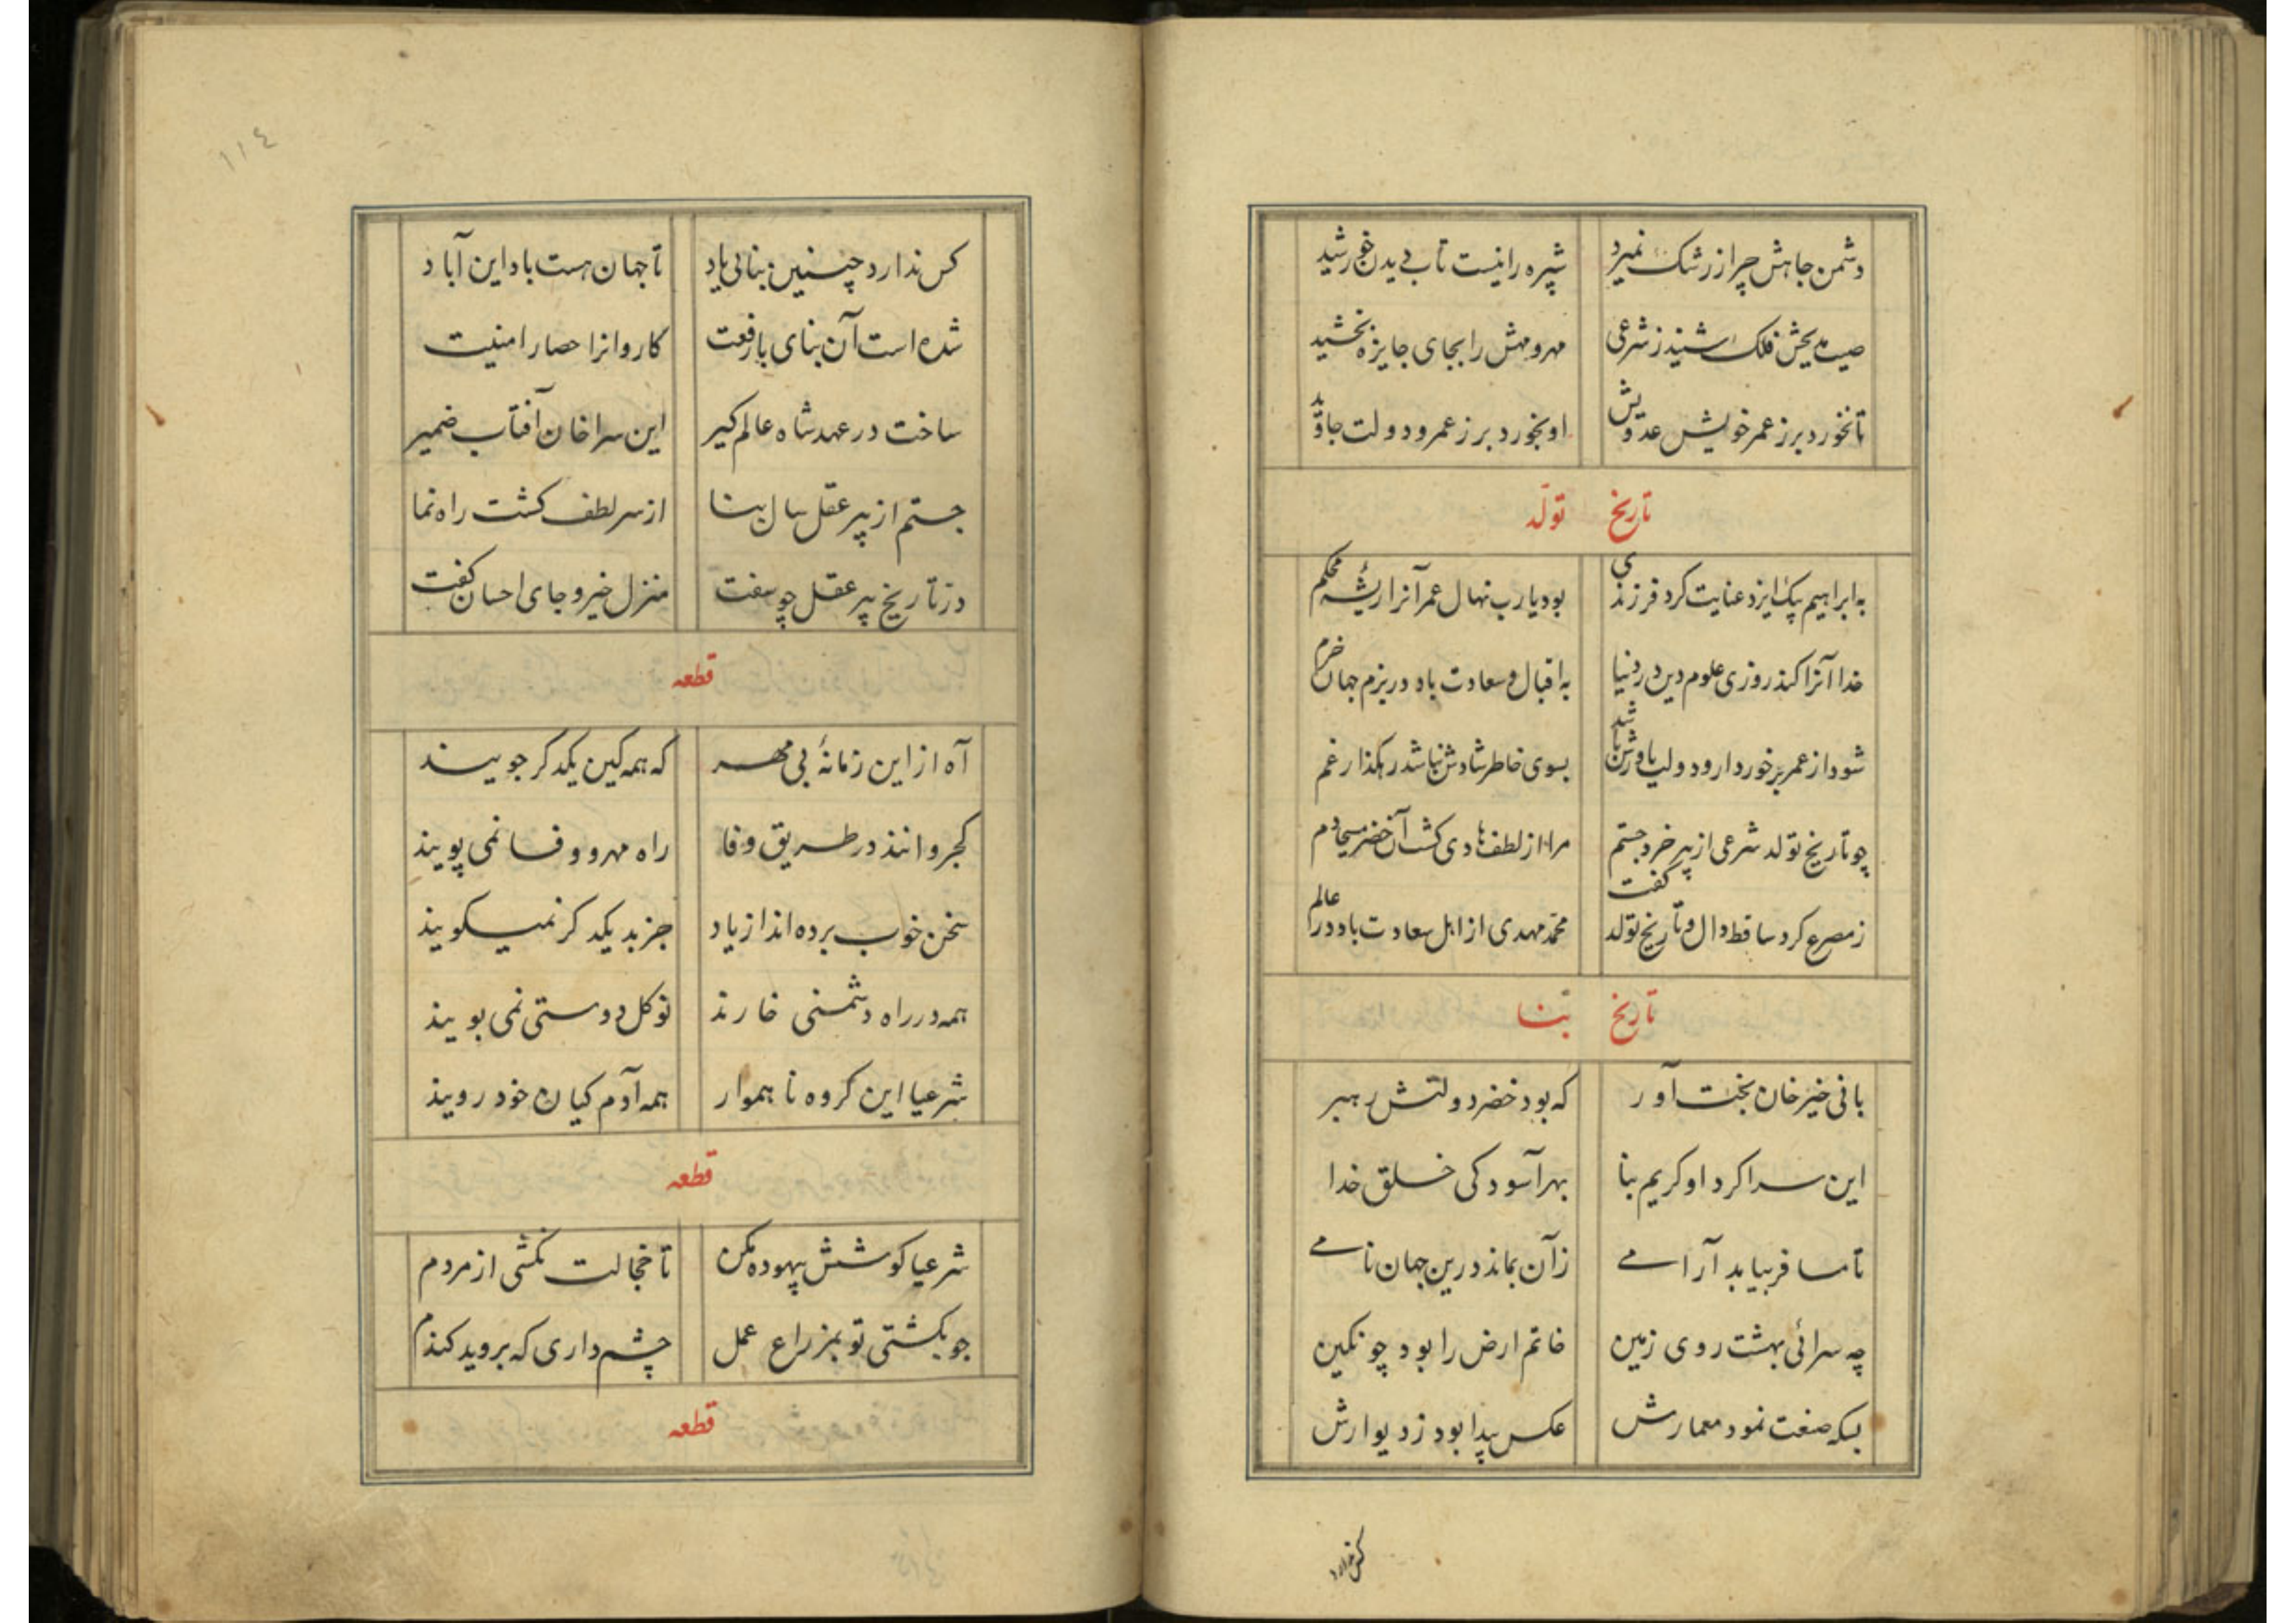 دشمن جاهش چرا ز رشک نمیرد شپره را نیست تاب دیدن خورشید
صیت مدیحش فلک شنید ز شرعی مهر و مهش را بجای جایزه بخشید
تا نخورد بر ز عمر خویش عدویش او بخورد بر ز عمر و دولت جاوید
تاریخ تولّد
به ابراهیم بیک ایزد عنایت کرد فرزندی بود یارب نهال عمر آنرا ریشهٔ محکم
خدا آنرا کند روزی علوم دین در دنیا به اقبال و سعادت باد در بزم جهان خرم
شود از عمر برخوردار و دولت یاورش باشد بسوی خاطر شادش نباشد رهکذار غم
چو تاریخ تولد شرعی از پیر خرد جستم مرا از لطف هادی کشت آن خضر مسیحا دم
ز مصرع کرد ساقط دال و تاریخ تولد کفت محمّد مهدی از اهل سعادت باد در عالم
تاریخ بنا
بانی خیر خان بخت آور که بود خضر دولتش رهبر
این سرا کرد او کریم بنا بهر آسودکی خلق خدا
تا مسافر بیابد آرامے زآن بماند درین جهان نامے
چه سرائی بهشت روی زمین خاتم ارض را بود چو نکین
بسکه صنعت نمود معمارش عکس پیدا بود ز دیوارش
کس ندارد
١١٤
کس ندارد چنین بنائی یاد تا جهان هست باد این آباد
شده است آن بنای با رفعت کاروانرا حصار امنیت
ساخت در عهد شاه عالم کیر این سرا خان آفتاب ضمیر
جستم از پیر عقل سال بنا از سر لطف کشت راه نما
در تاریخ پیر عقل چو سفت منزل خیر و جای احسان کفت
قطعه
آه از این زمانهٔ بی مهر که همه کین یکدکر جویند
کجروانند در طریق وفا راه مهر و وفا نمی پویند
سخن خوب برده اند از یاد جز بد یکدکر نمیکویند
همه در راه دشمنی خارند نو کل دوستی نمی بویند
شرعیا این کروه ناهموار همه آدم کیان خود رویند
قطعه
شرعیا کوشش بیهوده مکن تا خجالت نکشی از مردم
جو بکشتی تو بمزراع عمل چشم داری که بروید کندم
قطعه